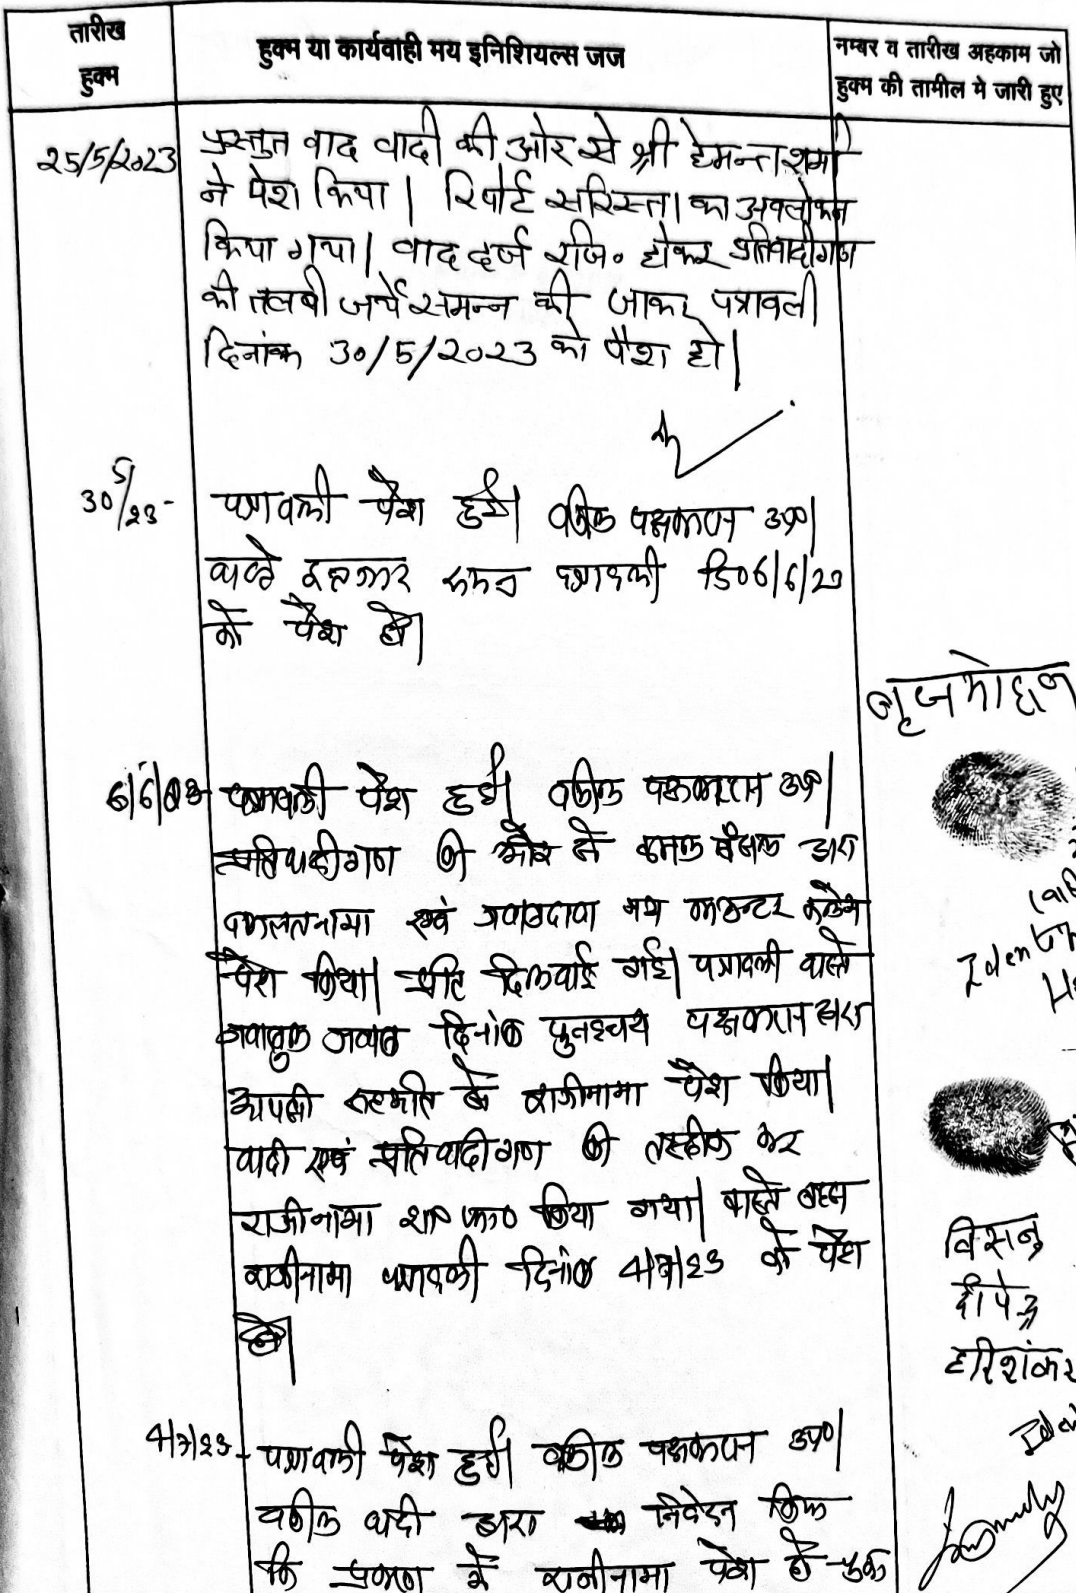 तारीख
हुक्म
हुक्म या कार्यवाही मय इनिशियल्स जज
नम्बर व तारीख अहकाम जो
हुक्म की तामील मे जारी हुए
25/5/2023
प्रस्तुत वाद वादी की ओर से श्री हेमन्त शर्मा
ने पेश किया। रिपोर्ट सरिस्ता का अवलोकन
किया गया। वाद दर्ज रजि० होकर प्रतिवादीगण
की तलबी जर्ये समन्न की जाकर पत्रावली
दिनांक 30/5/2023 को पैश हो।
30/5/23-
पत्रावली पैश हुई। वकील पक्षकारान उप०।
वास्ते पत्रावली दि० 6/6/23
को पैश हो।
6/6/23
पत्रावली पैश हुई। वकील पक्षकारान उप०।
प्रतिवादीगण की ओर से द्वारा
वकालतनामा एवं जवाबदावा मय काउन्टर क्लेम
पेश किया। प्रति दिलवाई गई। पत्रावली वास्ते
जवाबुल जवाब दिनांक पुनश्चय पक्षकारान द्वारा
आपसी सहमति से राजीनामा पैश किया।
वादी एवं प्रतिवादीगण की तस्दीक कर
राजीनामा शा० फा० किया गया। वास्ते बहस
राजीनामा पत्रावली दिनांक 4/7/23 को पैश
हो।
4/7/23-
पत्रावली पैश हुई। वकील पक्षकारान उप०।
वकील वादी द्वारा निवेदन किया
कि प्रकरण में राजीनामा पेश हो चुका
बृजमोहन
विसनु
दीपेन्द्र
हरिशंकर